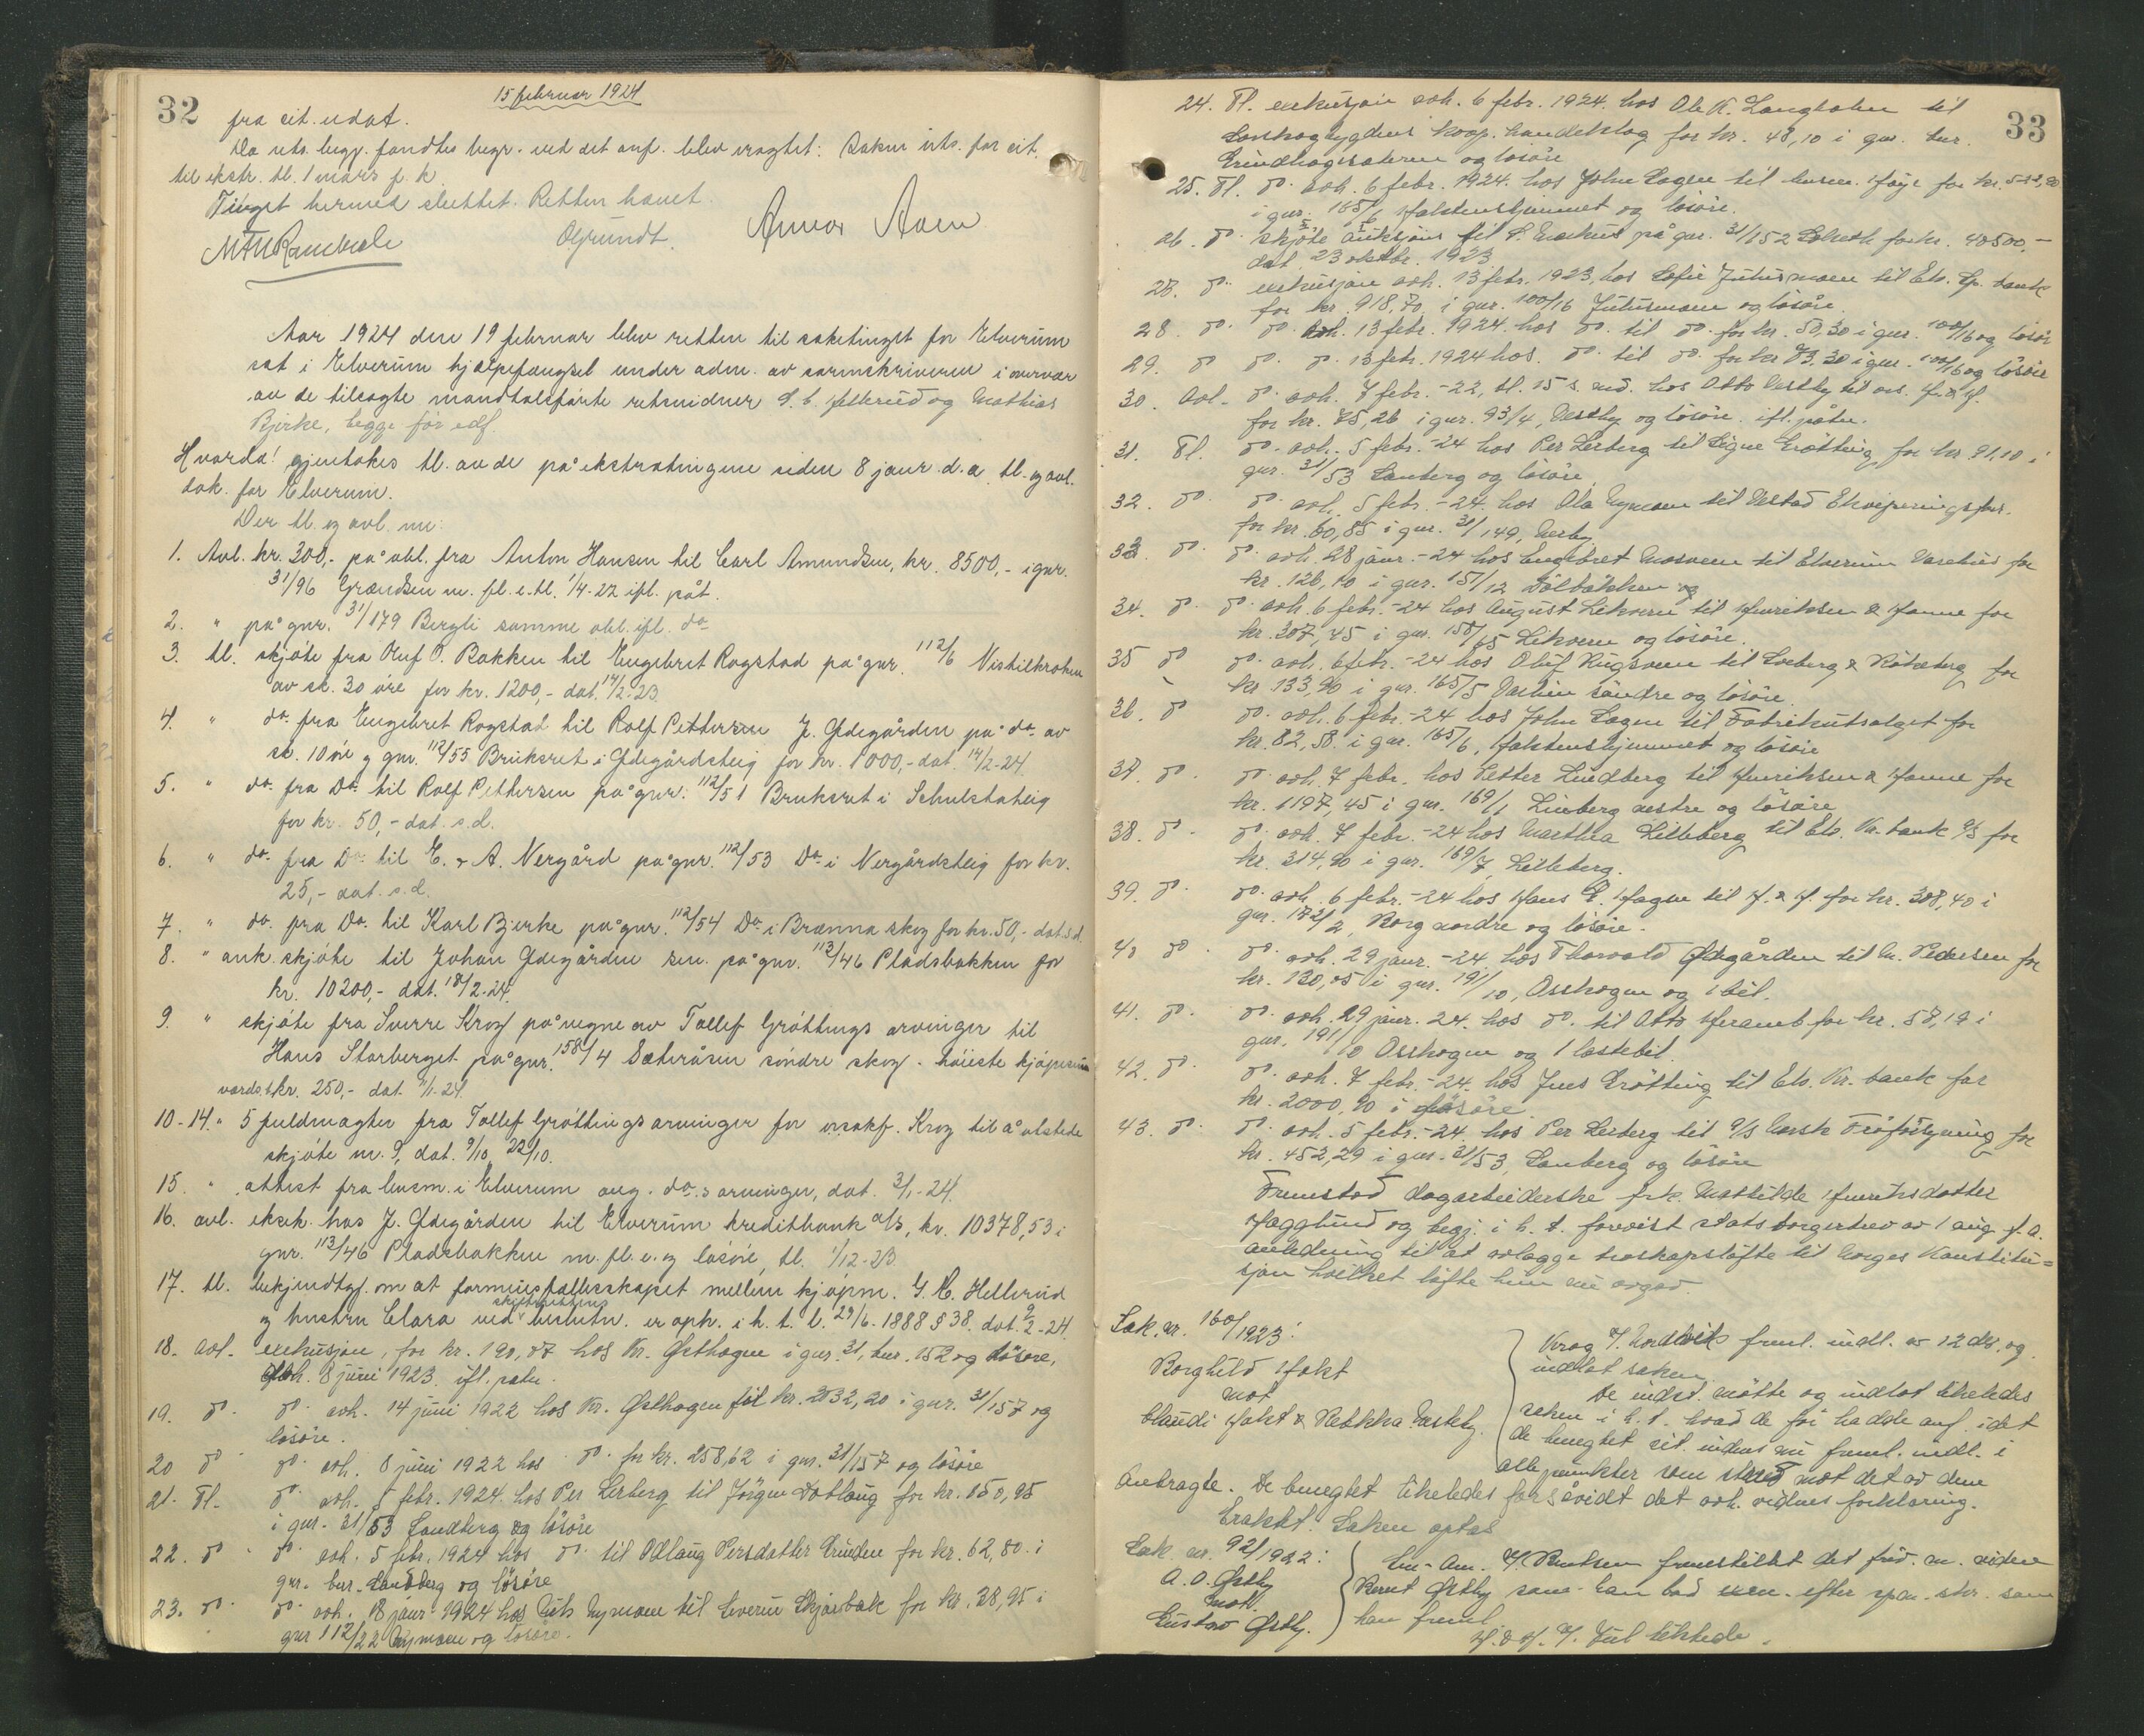 32
15 februar 1924
fra cit. udat.
Da intv. begj. fandtes begr. ved det anf. blev eragtet: Saken uts. for cit.
til ekstr. tl. 1 mars f. k.
Tinget hermed sluttet. Retten hævet.
OGrundt. Anvor Aaen
Aar 1924 den 19 februar blev retten til saketinget for Elverum
sat i Elverum hjælpefængsel under adm. av sorenskriveren i overvær
av de tilsagte mandtalsførte retsvidner og Mathias
Bjerke, begge før edf.
Hvorda! gjentokes tl. av de på ekstratingene siden 8 janr. d.a. tl. og avl.
dok. for Elverum.
Der tl. og avl. nu:
1. Avl. kr. 300,- på obl. fra Anton Hansen til Carl Amundsen, kr. 8500,- i gnr.
31/96 Grændsen m. fl. e. tl. 1/4-22 ifl. påt.
2. " på gnr. 31/179 Bergli samme obl. ifl. do
3. tl. skjøte fra Oluf O. Bakken til Engebret Rogstad på gnr. 112/6 Vestilkroken
av sk. 30 øre for kr. 1200,- dat. 14/2-23
4. " do. fra Engebret Rogstad til Rolf Pettersen J. Ødegården på do. av
sk. 10 øre g gnr. 112/55 Bruksret i Ødegårdsteig for kr. 1000,- dat. 14/2-24.
5. " do. fra Do. til Rolf Pettersen på gnr. 112/51 Bruksret i Schulstadteig
for kr. 50,- dat. s.d.
6. " do. fra Do. til E. & A. Nergård på gnr. 112/53 Do. i Nergårdsteig for kr.
25,- dat. s.d.
7. " do. fra Do. til Karl Bjerke på gnr. 112/54 Do. i Brænna skog for kr. 50,- dat. s.d.
8. " auk. skjøte til Johan Ødegården sen. på gnr. 113/46 Pladsbakken for
kr. 10200,- dat. 18/2-24.
9. " skjøte fra Sverre Krog på vegne av Tollef Grøttings arvinger til
Hans Storberget på gnr. 158/4 Sæteråsen søndre skog - høieste kjøpesum
værds kr. 250,- dat. 9/1-24.
10-14. " 5 fuldmagter fra Tollef Grøttings arvinger for orsakf. Krog til å utstede
skjøte nr. 9, dat. 9/10, 22/10.
15. " attest fra lensm. i Elverum ang. do.s arvinger, dat. 3/1-24.
16. avl. eksek. hos J. Ødegården til Elverum kreditbank a/s, kr. 10378,53 i
gnr. 113/46 Pladsbakken m. fl. e. og løsøre, tl. 1/12-23.
17. tl. bekjendtgj. om at formuesfællesskapet mellem kjøpm. G. K. Hellerud
og hustru Clara ved skifterettens beslutn. er oph. i h. t. l. 29/6-1888 § 38. dat. 9/2-24.
18. avl. exekusjon, for kr. 190,87 hos Kr. Østhagen i gnr. 31, bnr. 152 og løsøre,
avh. 8 juni 1923. ifl. påtn.
19. do. do. avh. 14 juni 1922 hos Kr. Østhagen for kr. 2032,20 i gnr. 31/157 og
løsøre.
20 do do. avh. 8 juni 1922 hos do. for kr. 258,62 i gnr. 31/157 og løsøre
21. Tl. do. avh. 5 febr. 1924. hos Per Lerberg til Jörgen Dotlaug for kr. 150,95
i gnr. 31/53 Landberg og løsøre
22. do. do. avh. 5 febr. 1924 hos do. til Odlaug Persdatter Grinden for kr. 62,80. i
gnr. bnr. Landberg og løsøre
23. do. do. avh. 18 janr. 1924 hos Nymoen til Skjærbæk for kr. 28,95 i
gnr 112/22 Nymoen og løsøre.
33
24. Tl. exekusjon avh. 6 febr. 1924. hos Ole K. Langholen til
Sørskogbygdens koop. handelslag for kr. 48,10 i gnr. bnr.
og løsøre
25. Tl. do. avh. 6 febr. 1924. hos John Sagen til for kr.
i gnr. 165/6 Holstenshjemmet og løsøre.
26. do. skjøte auksjons til S. Markus på gnr. 31/152 Solheth for kr. 40500.-
dat. 23 oktbr. 1923
27. do. exekusjon avh. 13 febr. 1923, hos Sofie til Elv. Sp. bank
for kr. 918,70, i gnr. 100/16 og løsøre.
28. do. do. avh. 13 febr. 1924. hos do. til do. for kr. 50,30 i gnr. 100/16 og løsøre
29. do do. do. 13 febr. 1924 hos. do. til do. for kr 73.30 i gnr. 100/16 og løsøre
30. Avl. do. avh. 7 febr. -22, tl. 15 s. md. hos Otto Vestby til
for kr. 75,26 i gnr. 93/4, Vestby og løsøre. ifl. påtn.
31. Tl. do. avh. 5 febr. -24 hos Per Lerberg til Signe Grøtting for kr 91,10 i
gnr. 31/53 Landberg og løsøre
32. do. do. avh. 5 febr. -24. hos Ola Nymoen til Ekviperingsforr.
for kr. 60,85 i gnr. 31/149,
33 do. do. avh. 28 janr. -24 hos Engebret Mosveen til Elverum Varehus for
kr. 126,10 i gnr. 151/12 Dølbakken og
34. do. do. avh. 6 febr. -24 hos August Likveen til Henriksen & Hanne for
kr. 307,45 i gnr. 158/65 Likveen og løsøre.
35 do do. avh. 6 febr. -24 hos Oluf til Loeberg & for
kr 133,90 i gnr. 165/5 søndre og løsøre
36. do do. avh. 6 febr. -24 hos John Sagen til Fabrikutsalget for
kr. 82,58. i gnr. 165/6, Holstenshjemmet og løsøre
37. do. do. avh. 7 febr. hos Petter Lindberg til Henriksen & Hanne for
kr. 1197,45 i gnr. 169/1 Linberg vestre og løsøre
38. do. do. avh. 7 febr. -24 hos Marthea Lilleberg til Elv. Kr. bank a/s for
kr. 314,90 i gnr. 169/7, Lilleberg.
39. do. do. avh. 6 febr. -24 hos Hans Hagen til H. & H. for kr. 308,40 i
gnr. 172/2, Borg nordre og løsøre.
40 do. do. avh. 29 janr. -24. hos Thorvald Ødegården til M. Pedersen for
kr. 130,05 i gnr. 191/10, Osskogen og 1 bil.
41. do. do. avh. 29 janr. 24. hos do. til Otto for kr. 58,19 i
gnr. 191/10 Osskogen og 1 lastebil.
42. do. do. avh. 7 febr. -24. hos Jens Grøtting til Elv. Kr. bank for
kr. 2000,90 i løsøre.
43. do. do. avh. 5 febr. -24. hos Per Lerberg til a/s Norsk Frøforsyning for
kr. 452,29 i gnr. 31/53, Landberg og løsøre
Fremstod dagarbeiderske frk. Mathilde Henriksdatter
Hagglund og begj. i h. t. forevist statsborgerbrev av 1 aug. f. a.
anledning til at avlægge troskapsløfte til Norges Konstitu=
sjon hvilket løfte hun nu avgav.
Sak. nr. 160/1923:
Borghild Hokt
mot
Claudi Hokt & Rebekka Vestby.
Krog v/ Nordtvik freml. indl. av 12 ds. og
indlot saken.
De indst. møtte og indlot likeledes
saken i h. t. hvad de før hadde anf. idet
de benegtet cit. indens nu freml. indl. i
alle punkter som stred mot det av dem
Anbragte. De benegtet likeledes forsåvidt det avh. vidnes forklaring.
Erakkt: Saken optas
Sak. nr. 92/1922:
A. O. Østby
mot.
Gustav Østby.
fremstillet det førd. m. vidne
Bernt Østby som han bad exam. efter spm. skr. som
han freml.
H. & H. v/ Juel likelede.